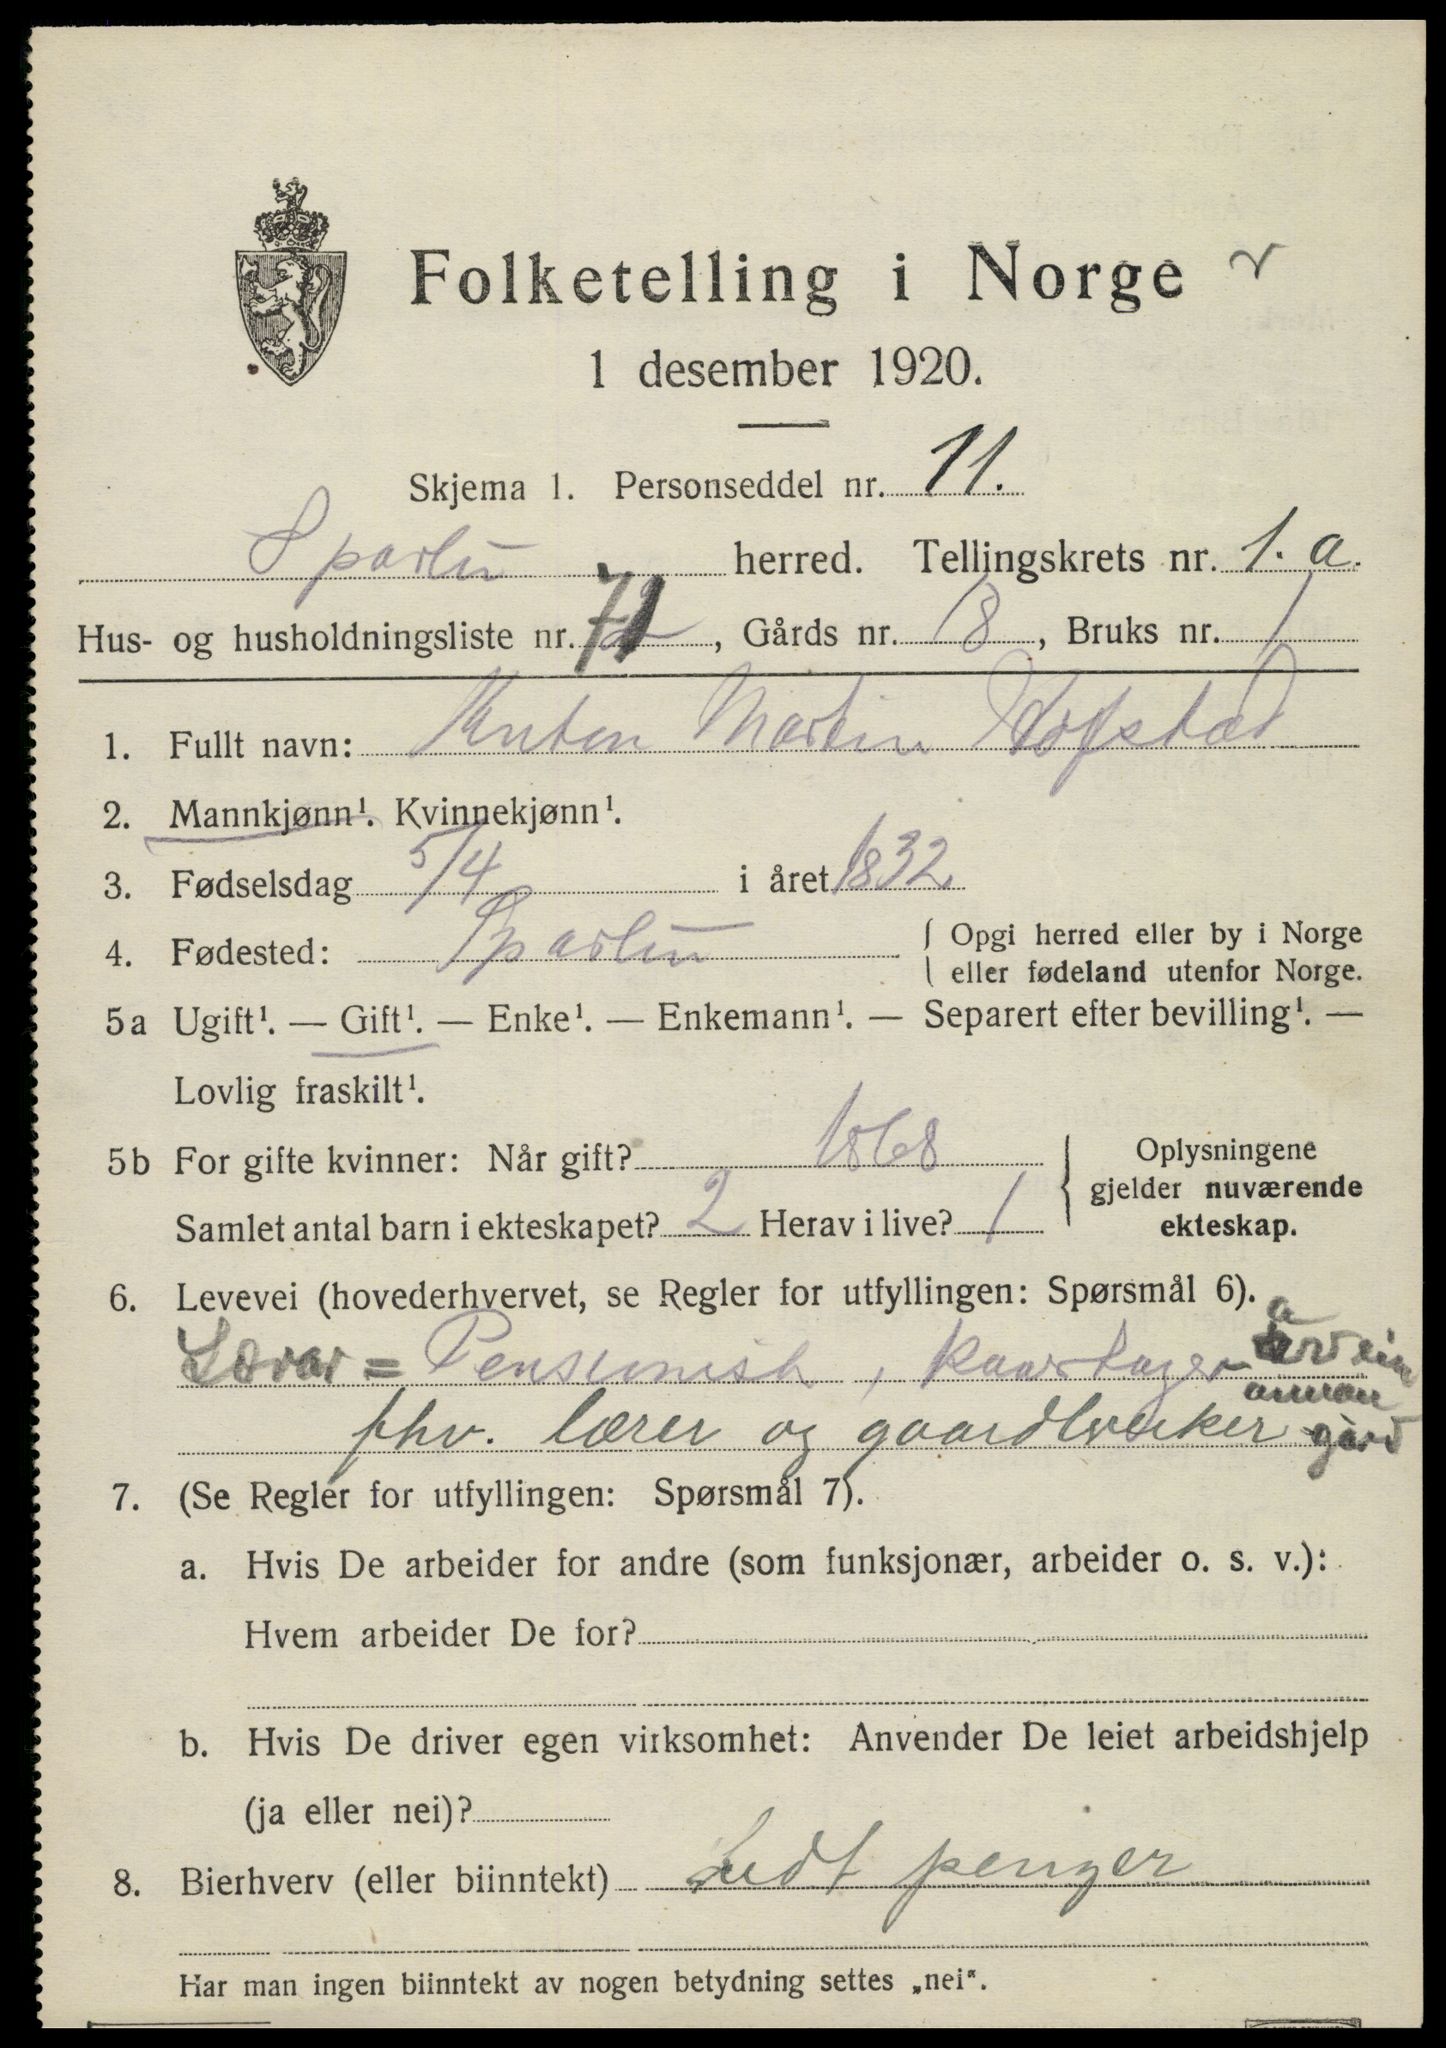 Folketelling i Norge
1 desember 1920.
Skjema 1. Personseddel nr. 11.
Sparbu herred. Tellingskrets nr. 1. a.
Hus- og husholdningsliste nr. 71, Gårds nr. 18, Bruks nr. 1
1. Fullt navn: Anton Martin Hofstad
2. Mannkjønn¹. Kvinnekjønn¹.
3. Fødselsdag 5/4 i året 1832.
4. Fødested: Sparbu { Opgi herred eller by i Norge
eller fødeland utenfor Norge.
5a Ugift¹. — Gift¹. — Enke¹. — Enkemann¹. — Separert efter bevilling¹. —
Lovlig fraskilt¹.
5b For gifte kvinner: Når gift? 1868
Samlet antal barn i ekteskapet? 2 Herav i live? 1
{ Oplysningene
gjelder nuværende
ekteskap.
6. Levevei (hovederhvervet, se Regler for utfyllingen: Spørsmål 6).
Lærar = Pensionist, kaartager av ein
annan
fhv. lærer og gaardbruker gård
7. (Se Regler for utfyllingen: Spørsmål 7).
a. Hvis De arbeider for andre (som funksjonær, arbeider o. s. v.):
Hvem arbeider De for?
b. Hvis De driver egen virksomhet: Anvender De leiet arbeidshjelp
(ja eller nei)?
8. Bierhverv (eller biinntekt) Lidt penger
Har man ingen biinntekt av nogen betydning settes „nei“.